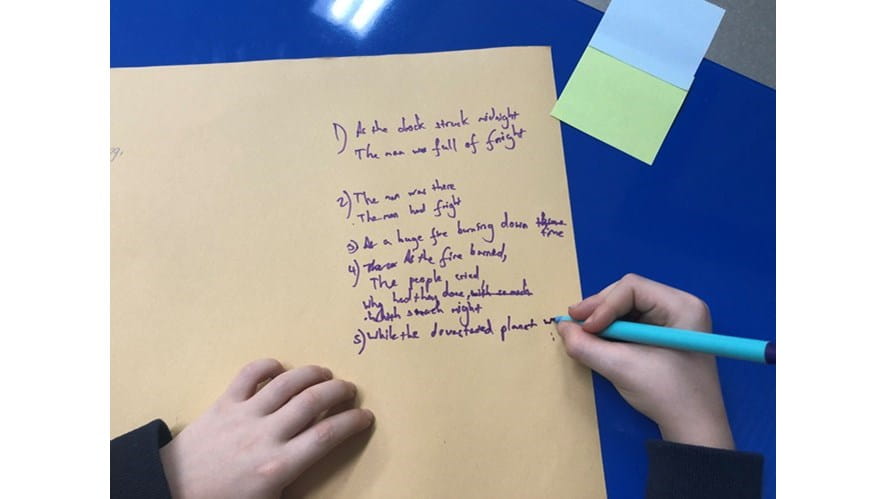 1) As the clock struck midnight
The man was full of fright
2) The man was there
. The man had fright
3) As a huge fire burning down
time
4) As the fire burned,
The people cried,
Why had they done, with so much
with so much might
5) While the devastated planet